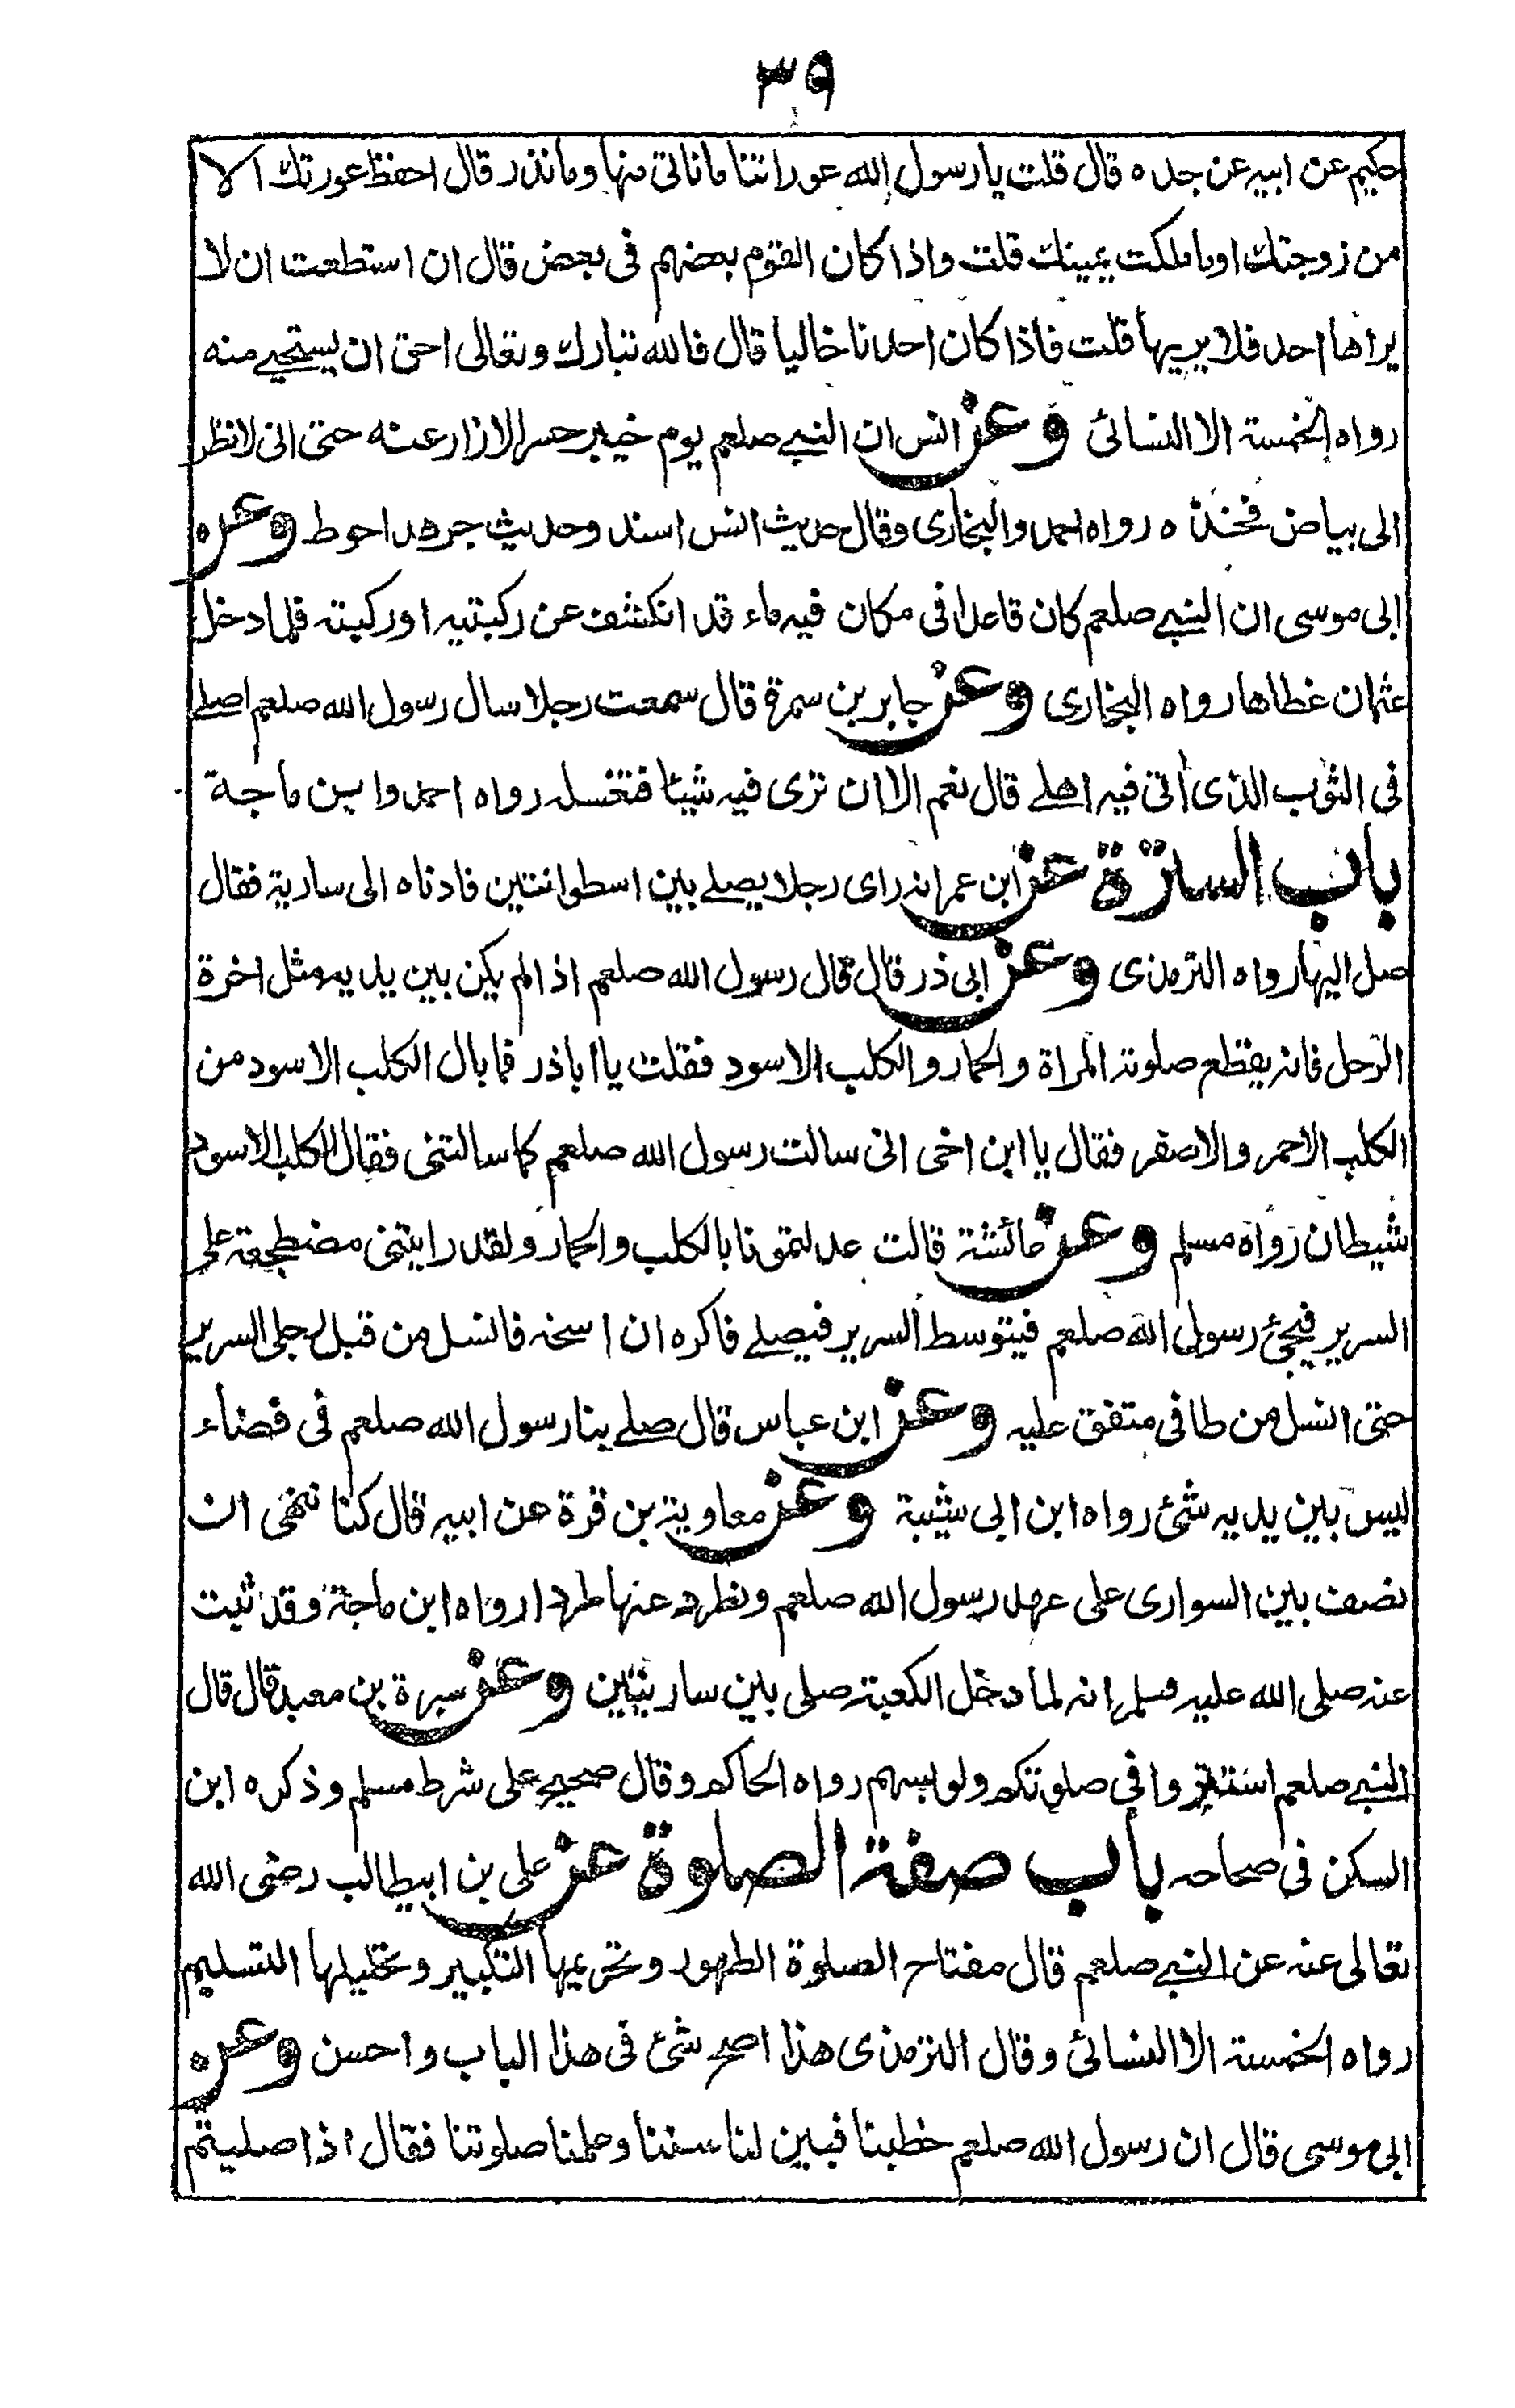 ٣٩
حكيم عن ابيه عن جده قال قلت يا رسول الله عوراتنا ما ناتى منها وما نذر قال احفظ عورتك الا
من زوجتك او ما ملكت يمينك قلت واذا كان القوم بعضهم فى بعض قال ان استطعت ان لا
يراها احد فلا يرينها قلت فاذا كان احدنا خاليا قال فالله تبارك وتعالى احق ان يستحيے منه
رواه الخمسة الا النسائى وعن انس ان النبے صلعم يوم خيبر حسر الازار عنه حتى انى لانظر
الى بياض فخذه رواه احمد والبخارى وقال حديث انس اسند وحديث جرهد احوط وعن
ابى موسى ان النبے صلعم كان قاعدا فى مكان فيه ماء قد انكشف عن ركبتيه او ركبته فلما دخل
عثمان غطاها رواه البخارى وعن جابر بن سمرة قال سمعت رجلا سال رسول الله صلعم اصلے
فى الثوب الذى اتى فيه اهلے قال نعم الا ان ترى فيه شيئا فتغسله رواه احمد وابن ماجة
باب السترة عن ابن عمر انه راى رجلا يصلے بين اسطوانتين فادناه الى سارية فقال
صل اليها رواه الترمذى وعن ابى ذر قال قال رسول الله صلعم اذا لم يكن بين يديه مثل اخرة
الرحل فانه يقطع صلوته المراة والحمار والكلب الاسود فقلت يا اباذر فما بال الكلب الاسود من
الكلب الاحمر والاصفر فقال يا ابن اخى انى سالت رسول الله صلعم كما سالتنى فقال الكلب الاسود
شيطان رواه مسلم وعن عائشة قالت عدلتمونا بالكلب والحمار ولقد رايتنى مضطجعة على
السرير فيجئ رسول الله صلعم فيتوسط السرير فيصلے فاكره ان اسنحه فانسل من قبل رجلى السرير
حتى انسل من لحافى متفق عليه وعن ابن عباس قال صلے بنا رسول الله صلعم فى فضاء
ليس بين يديه شئ رواه ابن ابى شيبة وعن معاوية بن قرة عن ابيه قال كنا ننهى ان
نصف بين السوارى على عهد رسول الله صلعم ونطرد عنها طردا رواه ابن ماجة وقد ثبت
عنه صلى الله عليه وسلم انه لما دخل الكعبة صلى بين ساريتين وعن سبرة بن معبد قال قال
النبے صلعم استتروا فى صلوتكم ولو بسهم رواه الحاكم وقال صحيح على شرط مسلم وذكره ابن
السكن فى صحاحه باب صفة الصلوة عن على بن ابيطالب رضى الله
تعالى عنه عن النبے صلعم قال مفتاح الصلوة الطهور وتحريمها التكبير وتحليلها التسليم
رواه الخمسة الا النسائى وقال الترمذى هذا اصح شئ فى هذا الباب واحسن وعن
ابى موسى قال ان رسول الله صلعم خطبنا فبين لنا سنننا وعلمنا صلوتنا فقال اذا صليتم